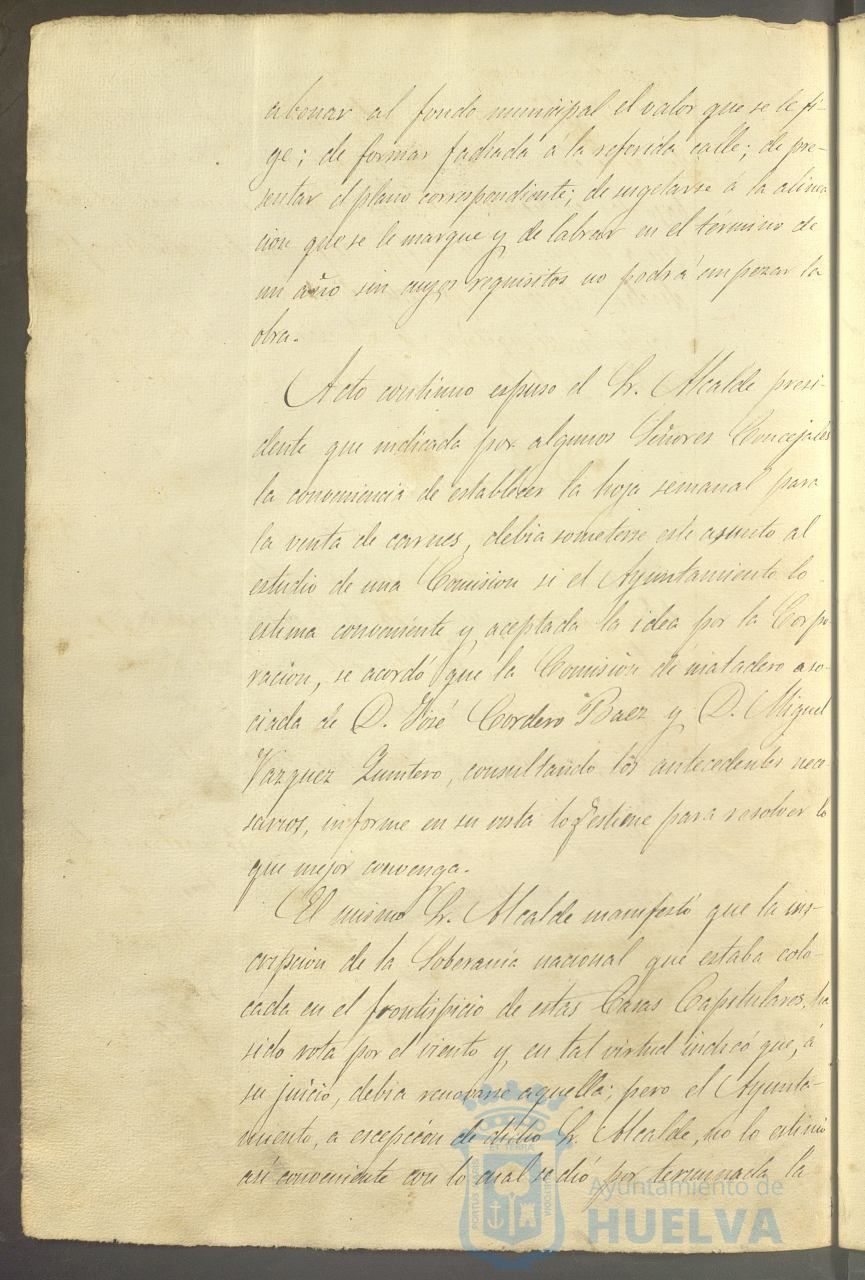 abonar al fondo municipal el valor que se le fi-
ge; de formar fachada á la referida calle; de pre-
sentar el plano correspondiente; de sugetarse á la alinea
cion que se le marque y de labrar en el término de
un año sin cuyos requisitos no podrá empezar la
obra.
Acto continuo espuso el Sr. Alcalde presi-
dente que indicada por algunos Señores Concejales
la conveniencia de establecer la hoja semanal para
la venta de carnes, debia someterse este asunto al
estudio de una Comision si el Ayuntamiento lo
estima conveniente y aceptada la idea por la Corpo
racion, se acordó que la Comision de matadero aso-
ciada de D. José Cordero Baez y D. Miguel
Vazquez Quintero, consultando los antecedentes nece-
sarios, informe en su vista lo q estime para resolver lo
que mejor convenga.
El mismo Sr. Alcalde manifestó que la ins-
cripcion de la Soberania nacional que estaba colo-
cada en el frontispicio de estas Casas Capitulares, ha
sido rota por el viento y en tal virtud indicó que, á
su juicio, debia renovarse aquella; pero el Ayunta-
miento, a escepción de dicho Sr. Alcalde, no lo estimó
asi conveniente con lo cual se dió por terminada la
Ayuntamiento de
HUELVA